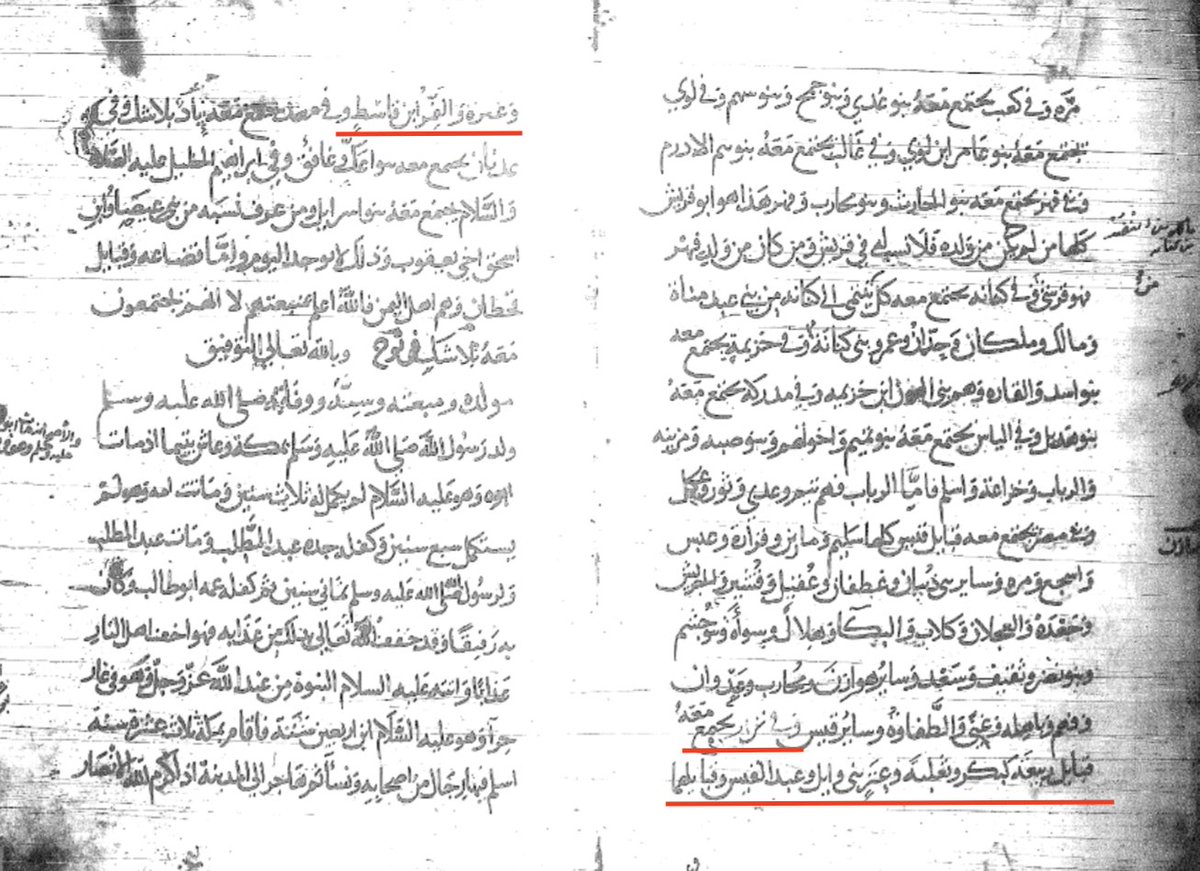 مرة وفي كعب يجتمع معه بنو عدي وبنو جمح وبنو سهم وفي لوي
يجتمع معه بنو عامر ابن لوي وفي غالب يجتمع معه بنو تيم الادرم
وفي فهر يجتمع معه بنو الحارث وبنو محارب وفهر هذا هو ابو قريش
كلها من لم يكن من ولده فلا نسب له في قريش ومن كان من ولد فهر
فهو قرشي وفي كنانه يجتمع معه كل من ينتمي الى كنانه من بني عبد مناة
ومالك وملكان وحدان وعمرو بني كنانة وفي خزيمة يجتمع معه
بنو اسد والقاره وهم بني الهون ابن خزيمه وفي مدركة يجتمع معه
بنو هذيل وفي الياس يجتمع معه بنو تميم واخوانهم وبنو ضبه ومزينه
والرباب وخزاعة واسلم فاما الرباب فهم تيم وعدي وثور وعكل
وفي مضر يجتمع معه قبايل قيس كلها سليم ومازن وفزارة وعبس
واشجع ومره وساير بني ذبيان وغطفان وعقيل وقشير والحريش
وجعدة والعجلان وكلاب والبكا وهلال وسواة وبنو جشم
وبنو نصر وثقيف وسعد وساير هوازن ومحارب وعدوان
وفهم وباهله وغني والطفاوة وساير قيس وفي نزار يجتمع معه
قبايل ربيعة كبكر وتغلبة وعنز بني وايل وعبد القيس وقبايلها
وعنزه والنمر ابن قاسط وفي معد يجتمع معه اياد بلا شك وفي
عدنان يجتمع معه سواعك وغافق وفي ابراهيم الخليل عليه الصلاة
والسلام يجتمع معه بنو اسرايل ومن عرف نسبه من بني عيصا وابن
اسحق اخي يعقوب وذلك لا يوجد اليوم واما قضاعه وقبايل
قحطان وهم اهل اليمن فالله اعلم الا انهم يجتمعون
معه بلا شك في نوح وبالله تعالى التوفيق
مولده ومبعثه وسنه ووفاته صلى الله عليه وسلم
ولد رسول الله صلى الله عليه وسلم بمكة وعاش يتيما اذ مات
ابوه وهو عليه السلام لم يكمل له ثلاث سنين وماتت امه وهو لم
يستكمل سبع سنين وكفله جده عبد المطلب ومات عبد المطلب
ولرسول الله صلى الله عليه وسلم ثماني سنين ثم كفله عمه ابو طالب وكان
به رفيقا وقد خفف الله تعالى بذلك من عذابه فهو اخف اهل النار
عذابا واتته عليه السلام النبوة من عند الله عز وجل وهو في غار
حرآ وهو عليه السلام ابن اربعين سنة فاقام بمكة ثلاث عشرة سنة
اسلم فيها رجال من اصحابه ونسا ثم هاجر الى المدينة اذ اكرم الله الانصار